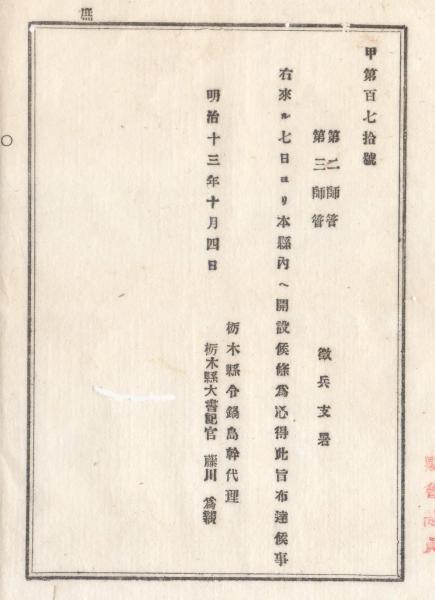 庶
甲第百七拾號
第二師管
第三師管
徵兵支署
右來ル七日ヨリ本縣內ヘ開設候條爲心得此旨布達候事
明治十三年十月四日
栃木縣令鍋島幹代理
栃木縣大書記官 藤川爲親